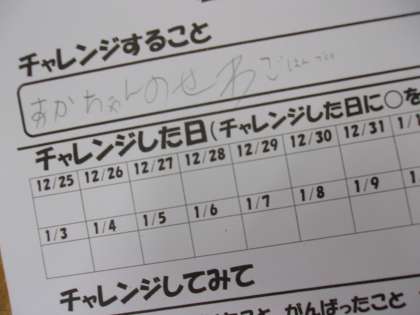 チャレンジすること
あかちゃんのせわ ごはん
チャレンジした日(チャレンジした日に○を
12/25 12/26 12/27 12/28 12/29 12/30 12/31 1/1
1/3 1/4 1/5 1/6 1/7 1/8 1/9 1
チャレンジしてみて
こと がんばったこと